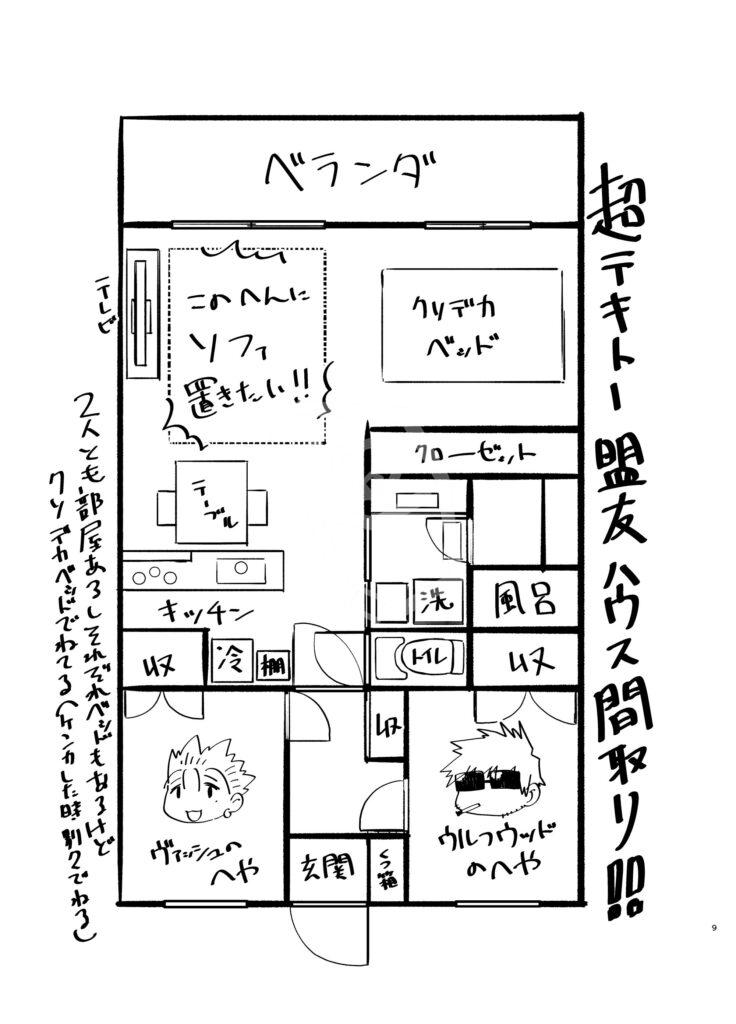 超テキトー 盟友ハウス間取り!!
ベランダ
テレビ
このへんに
ソファ
置きたい!!
クソデカ
ベッド
クローゼット
テーブル
キッチン
洗
風呂
収
冷
棚
トイレ
収
収
ヴァッシュの
へや
ウルフウッド
のへや
玄関
くつ箱
2人とも部屋あるしそれぞれベッドもあるけど
クソデカベッドでねてる(ケンカした時別々でねる)
9